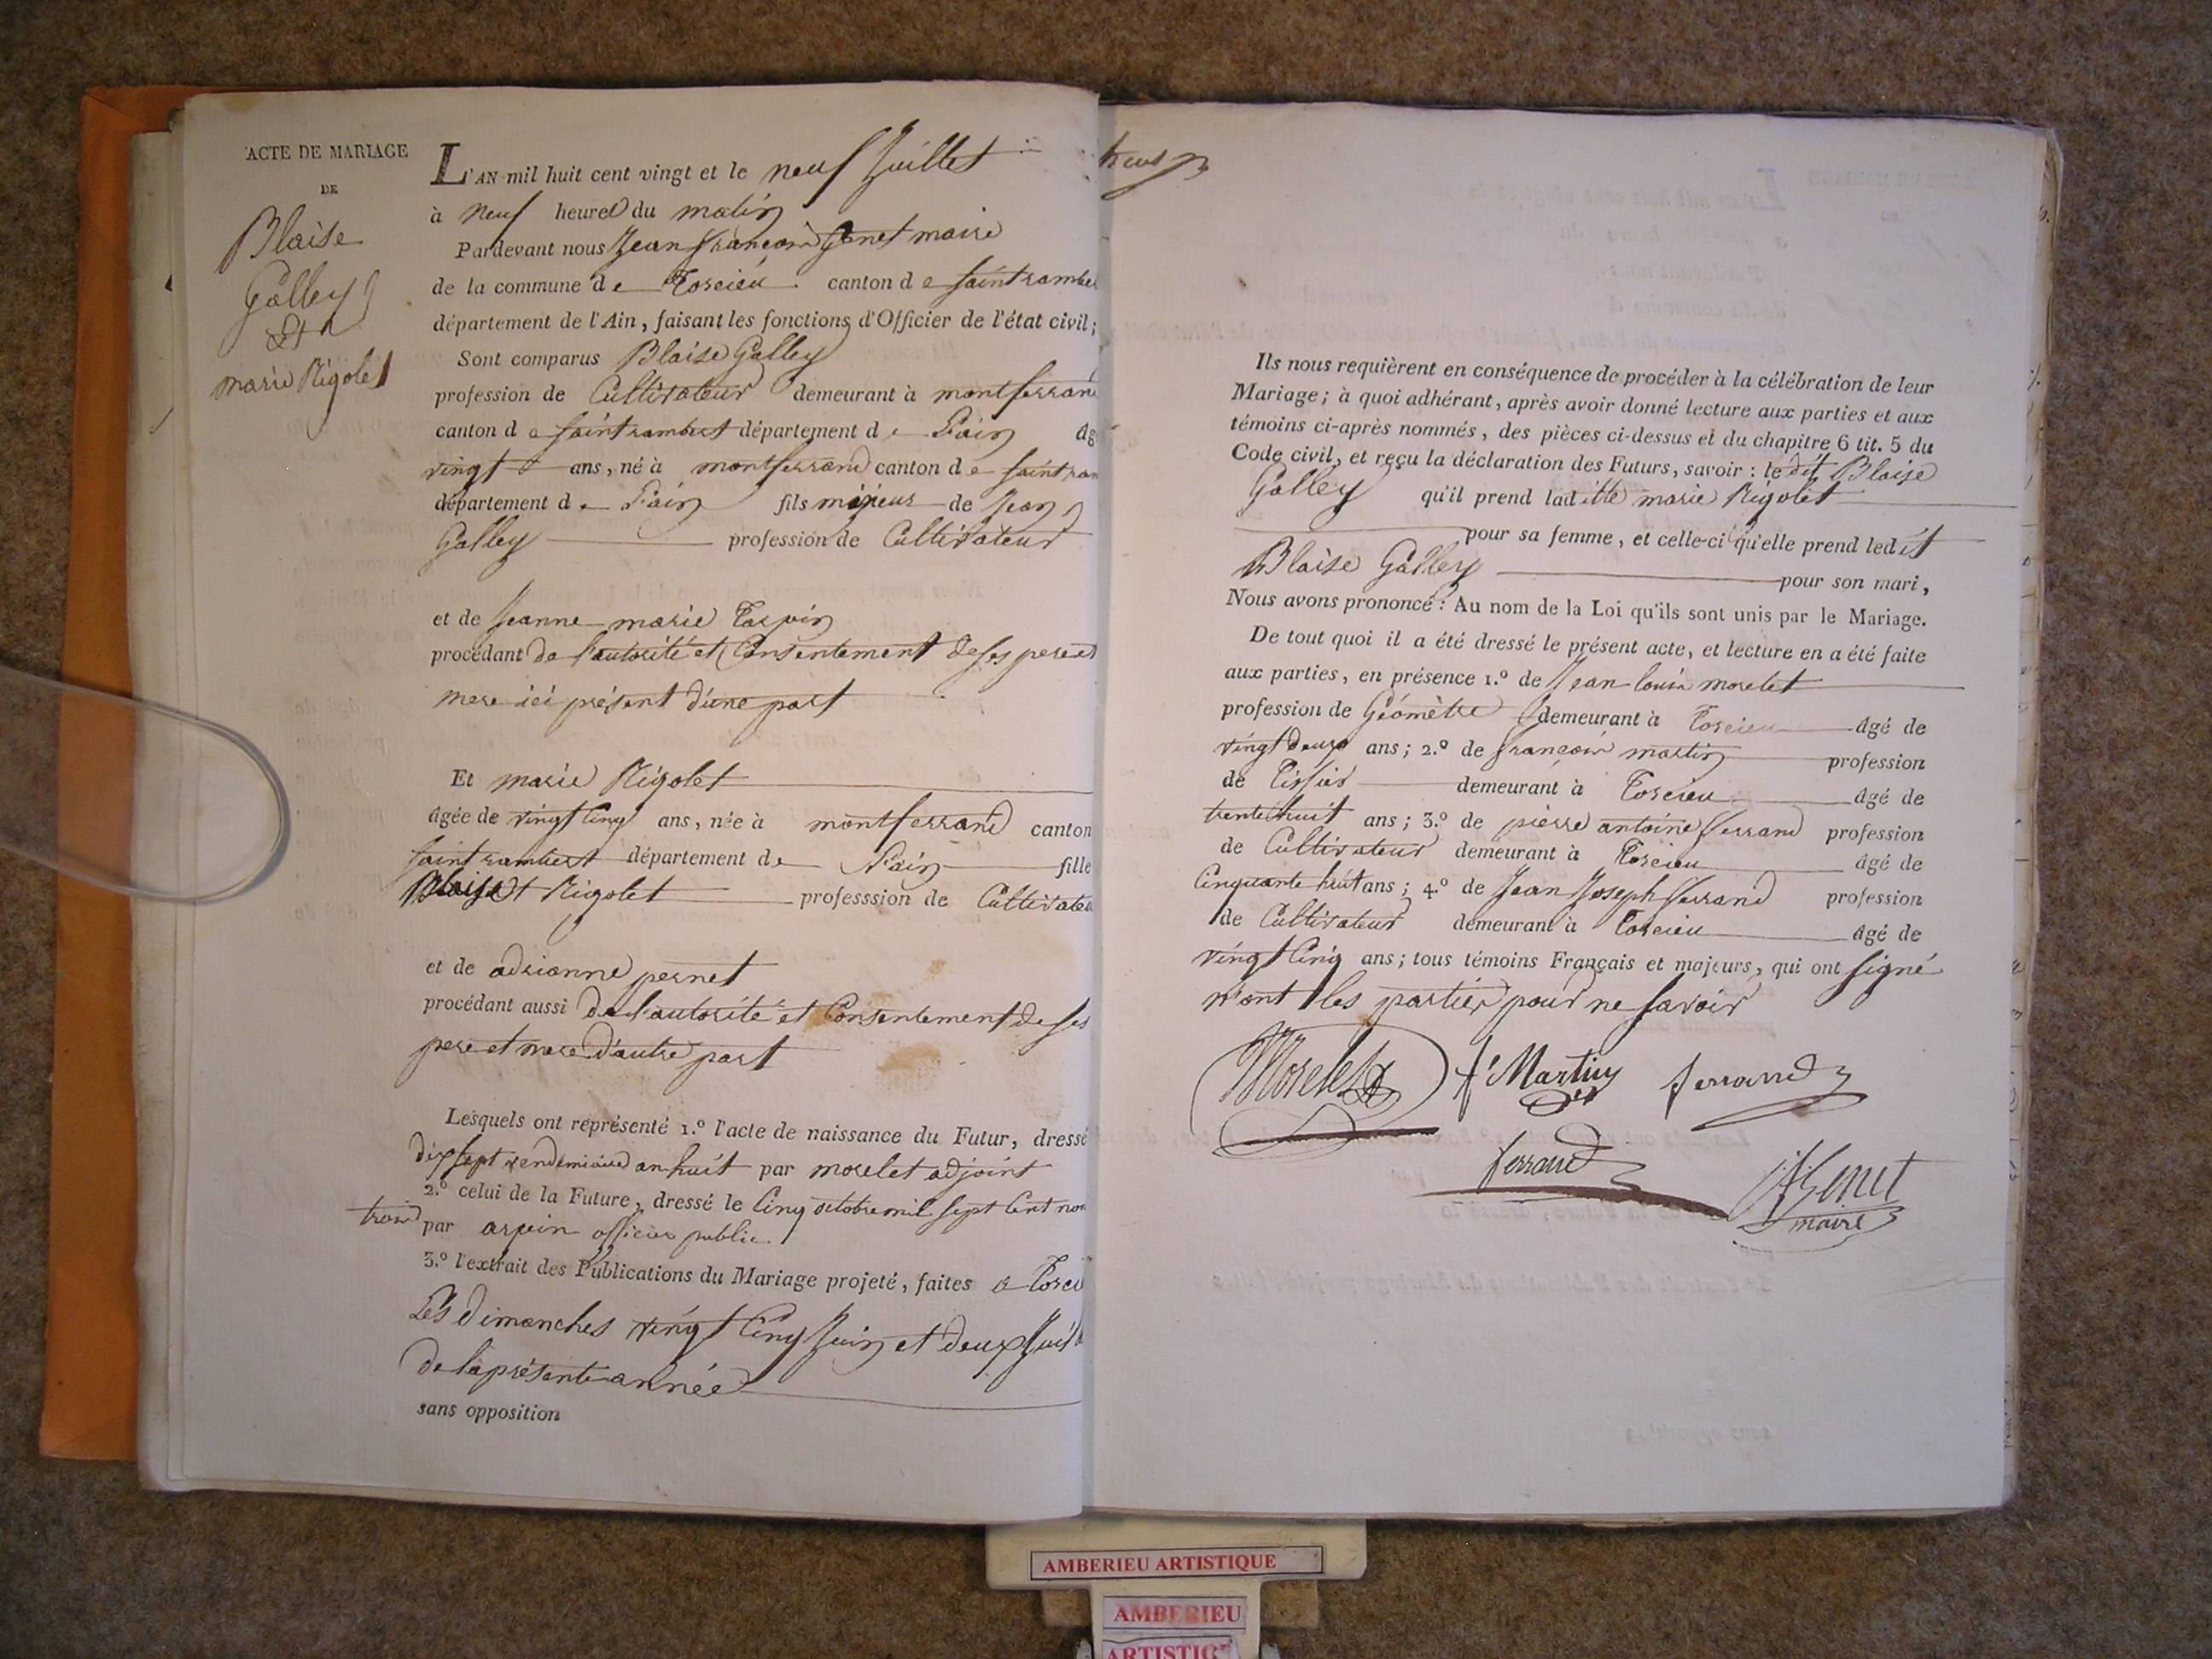 ACTE DE MARIAGE
DE
Blaise
Galley
Et
marie Rigolet
L'AN mil huit cent vingt et le neuf Juillet
à neuf heures du matin
Pardevant nous Jean françois Genet maire
de la commune de Torcieu canton de saint ramber
département de l'Ain, faisant les fonctions d'Officier de l'état civil;
Sont comparus Blaise Galley
profession de Cultivateur demeurant à montferran
canton de saint rambert département de l'ain ag
vingt ans, né à montferrand canton de saint ram
département de l'ain fils majeur de Jean
Galley profession de Cultivateur
et de Jeanne marie
procédant de l'autorité et Consentement de ses pere et
mere ici présent d'une part
Et marie Rigolet
âgée de vingt Cinq ans, née à montferrand canton
saint rambert département de l'ain fille
Rigolet professsion de Cultivateu
et de adrianne pernet
procédant aussi de l'autorité et Consentement de ses
pere et mere d'autre part
Lesquels ont représenté 1.º l'acte de naissance du Futur, dressé
dix sept vendemiaire an huit par morelet adjoint
2.º celui de la Future, dressé le Cinq octobre mil sept Cent non
trois par arpin officier public
3.º l'extrait des Publications du Mariage projeté, faites a Torci
Les dimanches vingt Cinq Juin et deux Juil
de la présente année
sans opposition
Ils nous requièrent en conséquence de procéder à la célébration de leur
Mariage; à quoi adhérant, après avoir donné lecture aux parties et aux
témoins ci-après nommés, des pièces ci-dessus et du chapitre 6 tit. 5 du
Code civil, et reçu la déclaration des Futurs, savoir: le dit Blaise
Galley qu'il prend laditte marie Rigolet
pour sa femme, et celle-ci qu'elle prend ledit
Blaise Galley pour son mari,
Nous avons prononcé: Au nom de la Loi qu'ils sont unis par le Mariage.
De tout quoi il a été dressé le présent acte, et lecture en a été faite
aux parties, en présence 1.º de Jean louis morelet
profession de Géomètre demeurant à Torcieu âgé de
vingt deux ans; 2.º de françois martin profession
de Tissier demeurant à Torcieu âgé de
trente huit ans; 3.º de pierre antoine ferrand profession
de Cultivateur demeurant à Torcieu âgé de
Cinquante huit ans; 4.º de Jean Joseph ferrand profession
de Cultivateur demeurant à Torcieu âgé de
vingt Cinq ans; tous témoins Français et majeurs, qui ont signé
n'ont les parties pour ne savoir
Morelet fs Martin ferrand
ferrand Genet
maire
AMBERIEU ARTISTIQUE
AMBERIEU
ARTISTIC